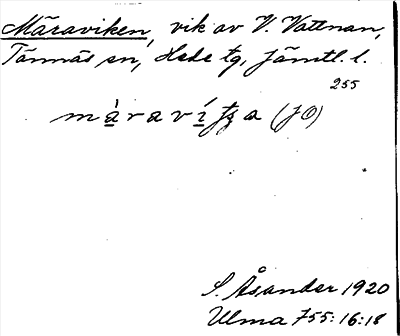 Māraviken, vik av V. Vattnan,
Tännäs sn, Hede tg, Jämtl. l.
255
(JO)
S. Åsander 1920
Ulma 755:16:18